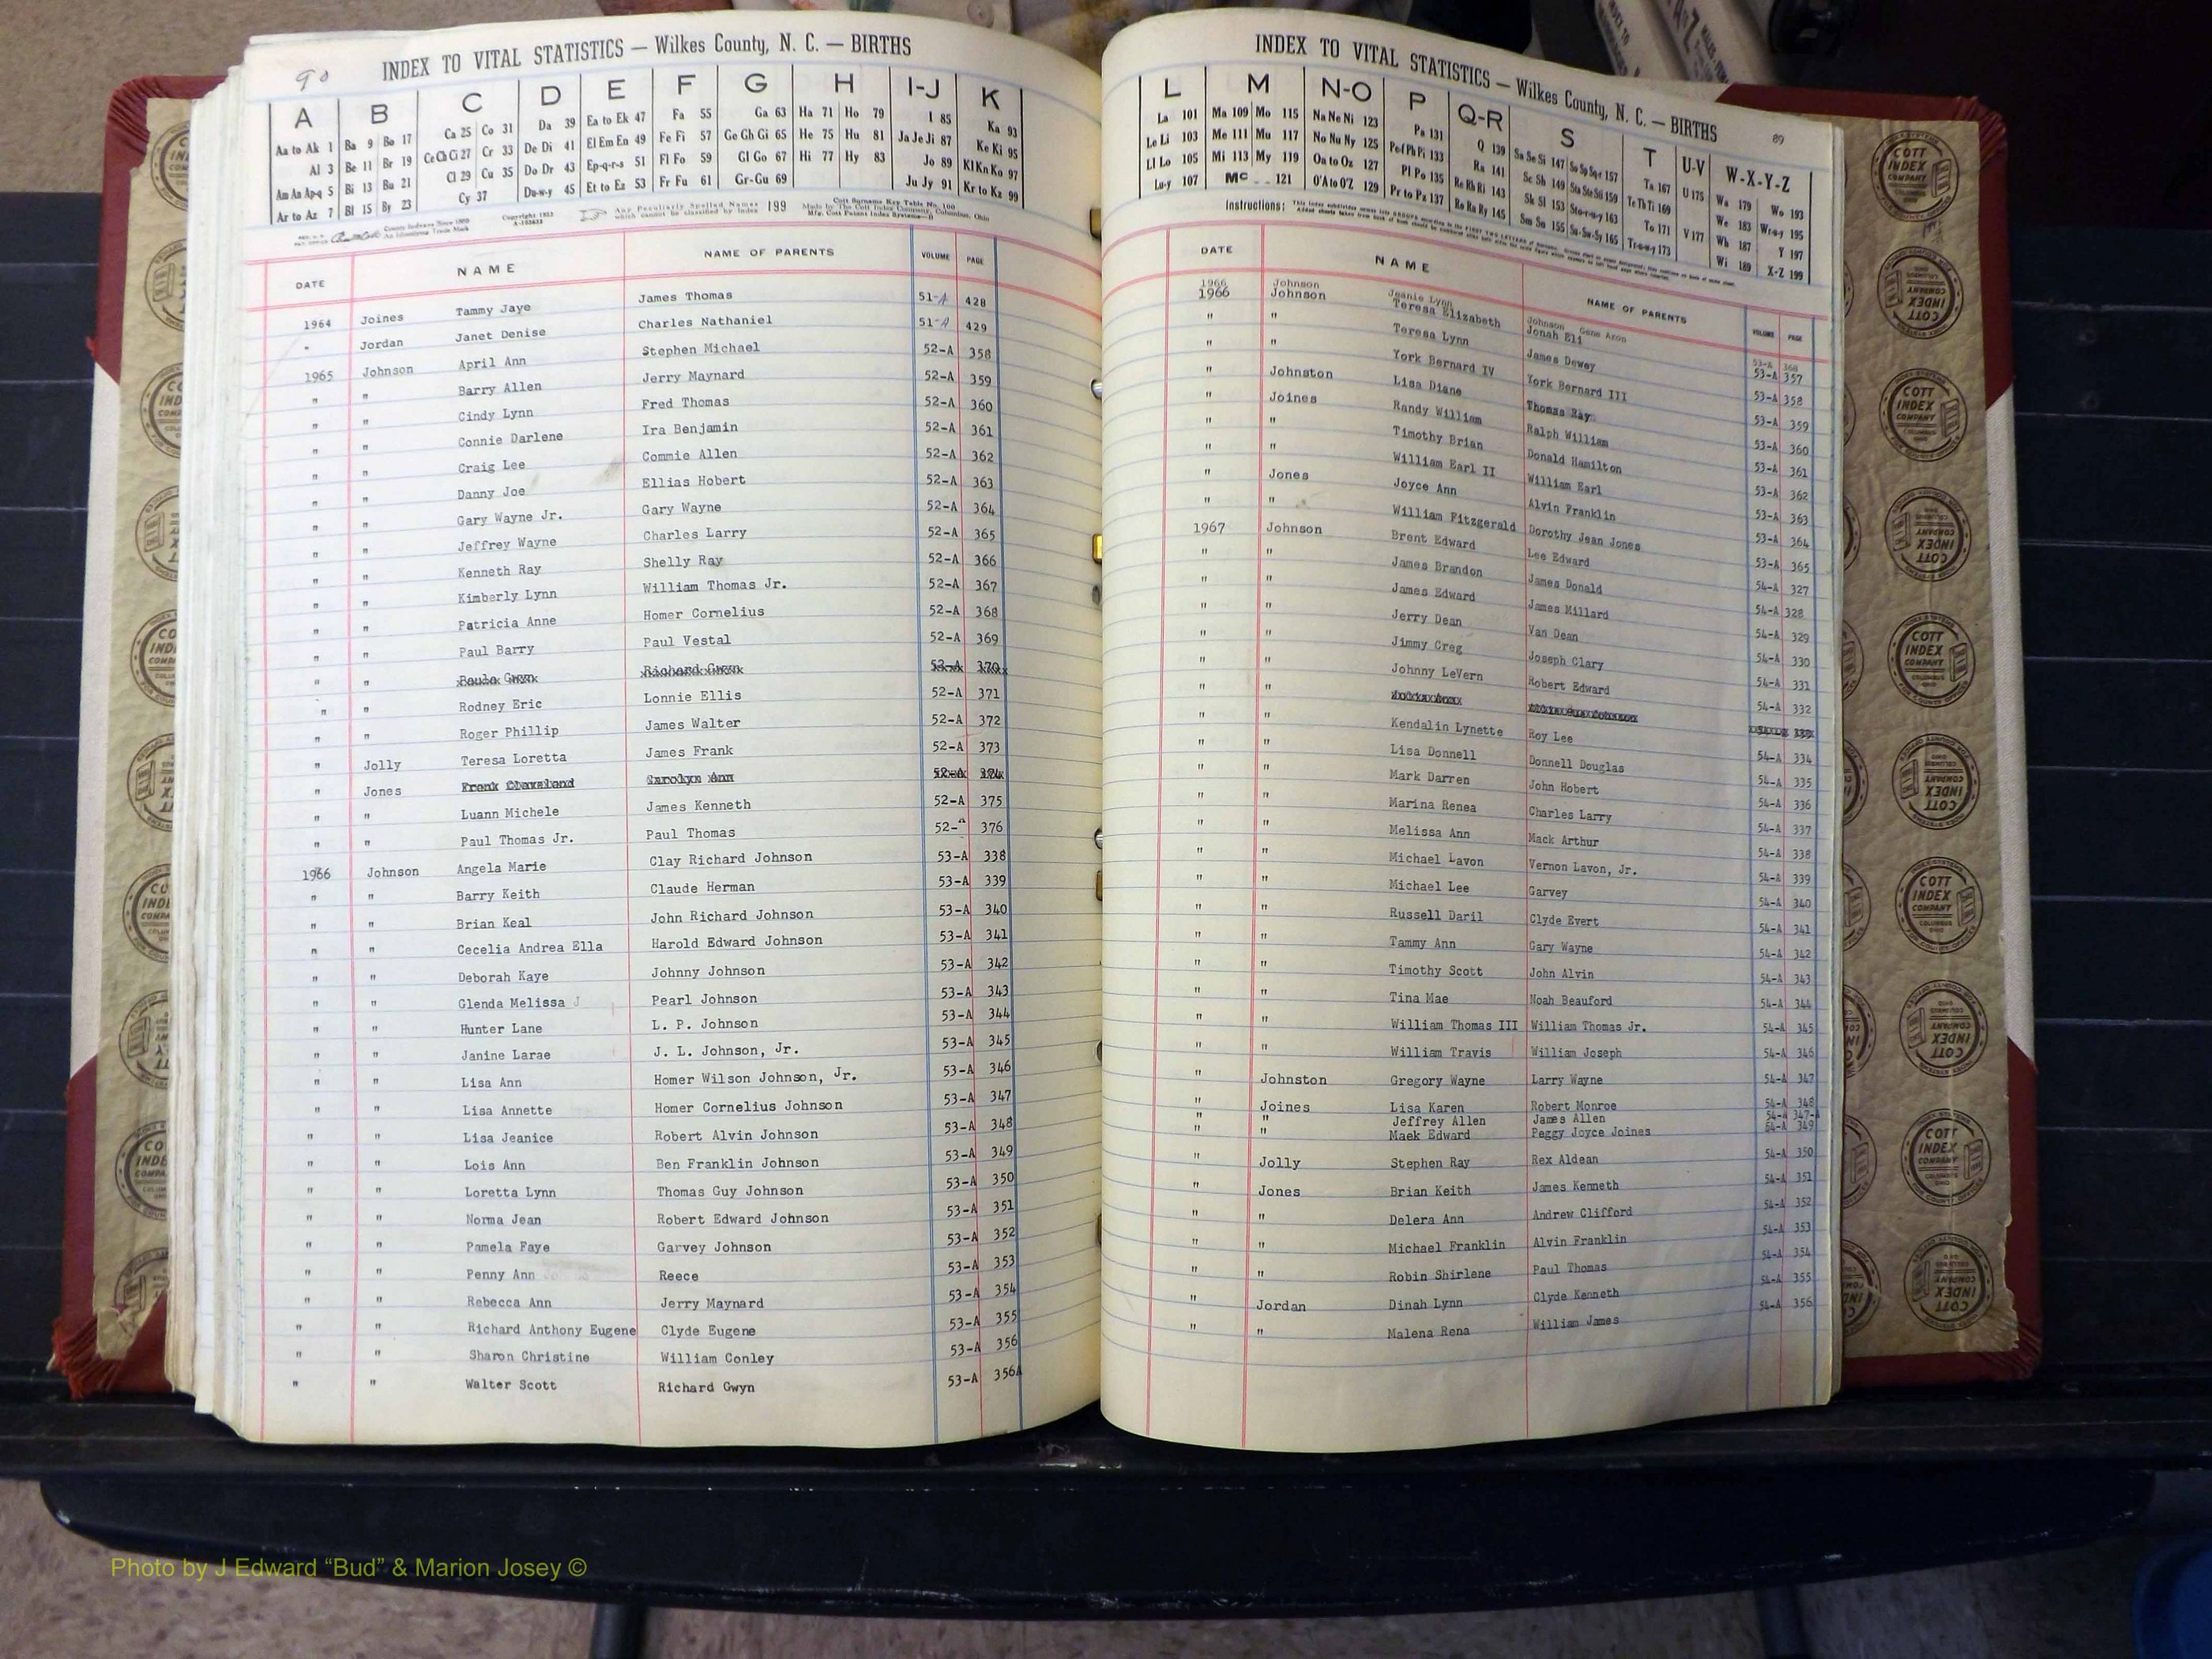 90
INDEX TO VITAL STATISTICS — Wilkes County, N. C. — BIRTHS
A B C D E F G H I-J K
Aa to Ak 1 Ba 9 Bo 17 Ca 25 Co 31 Da 39 Ea to Ek 47 Fa 55 Ga 63 Ha 71 Ho 79 I 85 Ka 93
Al 3 Be 11 Br 19 Ce Ch Ci 27 Cr 33 De Di 41 El Em En 49 Fe Fi 57 Ge Gh Gi 65 He 75 Hu 81 Ja Je Ji 87 Ke Ki 95
Am An Ap-q 5 Bi 13 Bu 21 Cl 29 Cu 35 Do Dr 43 Ep-q-r-s 51 Fl Fo 59 Gl Go 67 Hi 77 Hy 83 Jo 89 Kl Kn Ko 97
Ar to Az 7 Bl 15 By 23 Cy 37 Du-w-y 45 Et to Ez 53 Fr Fu 61 Gr-Gu 69 Ju Jy 91 Kr to Kz 99
Any Peculiarly Spelled Names which cannot be classified by Index 199
DATE NAME NAME OF PARENTS VOLUME PAGE
1964 Joines Tammy Jaye James Thomas 51-A 428
" Jordan Janet Denise Charles Nathaniel 51-A 429
1965 Johnson April Ann Stephen Michael 52-A 358
" " Barry Allen Jerry Maynard 52-A 359
" " Cindy Lynn Fred Thomas 52-A 360
" " Connie Darlene Ira Benjamin 52-A 361
" " Craig Lee Commie Allen 52-A 362
" " Danny Joe Ellias Hobert 52-A 363
" " Gary Wayne Jr. Gary Wayne 52-A 364
" " Jeffrey Wayne Charles Larry 52-A 365
" " Kenneth Ray Shelly Ray 52-A 366
" " Kimberly Lynn William Thomas Jr. 52-A 367
" " Patricia Anne Homer Cornelius 52-A 368
" " Paul Barry Paul Vestal 52-A 369
" " Paula Gwyn Richard Gwyn 52-A 370
" " Rodney Eric Lonnie Ellis 52-A 371
" " Roger Phillip James Walter 52-A 372
" Jolly Teresa Loretta James Frank 52-A 373
" Jones Frank Cleveland Carolyn Ann 52-A 374
" " Luann Michele James Kenneth 52-A 375
" " Paul Thomas Jr. Paul Thomas 52-A 376
1966 Johnson Angela Marie Clay Richard Johnson 53-A 338
" " Barry Keith Claude Herman 53-A 339
" " Brian Keal John Richard Johnson 53-A 340
" " Cecelia Andrea Ella Harold Edward Johnson 53-A 341
" " Deborah Kaye Johnny Johnson 53-A 342
" " Glenda Melissa J Pearl Johnson 53-A 343
" " Hunter Lane L. P. Johnson 53-A 344
" " Janine Larae J. L. Johnson, Jr. 53-A 345
" " Lisa Ann Homer Wilson Johnson, Jr. 53-A 346
" " Lisa Annette Homer Cornelius Johnson 53-A 347
" " Lisa Jeanice Robert Alvin Johnson 53-A 348
" " Lois Ann Ben Franklin Johnson 53-A 349
" " Loretta Lynn Thomas Guy Johnson 53-A 350
" " Norma Jean Robert Edward Johnson 53-A 351
" " Pamela Faye Garvey Johnson 53-A 352
" " Penny Ann Reece 53-A 353
" " Rebecca Ann Jerry Maynard 53-A 354
" " Richard Anthony Eugene Clyde Eugene 53-A 355
" " Sharon Christine William Conley 53-A 356
" " Walter Scott Richard Gwyn 53-A 356A
INDEX TO VITAL STATISTICS — Wilkes County, N. C. — BIRTHS
89
L M N-O P Q-R S T U-V W-X-Y-Z
La 101 Ma 109 Mo 115 Na Ne Ni 123 Pa 131 Q 139 Sa Se Si 147 So Sp Sq-r 157 Ta 167 U 175 Wa 179 Wo 193
Le Li 103 Me 111 Mu 117 No Nu Ny 125 Pe Pf Ph Pi 133 Ra 141 Sc Sh 149 Sta Ste Sti 159 Te Th Ti 169 V 177 We 183 Wr-u-y 195
Ll Lo 105 Mi 113 My 119 Oa to Oz 127 Pl Po 135 Re Rh Ri 143 Sk Sl 153 Sto-r-u-y 163 To 171 Wh 187 Y 197
Lu-y 107 Mc 121 O'A to O'Z 129 Pr to Pz 137 Ro Ru Ry 145 Sm Sn 155 Su-Sw-Sy 165 Tr-u-w-y 173 Wi 189 X-Z 199
Instructions:
DATE NAME NAME OF PARENTS VOLUME PAGE
1966 Johnson Jeanie Lynn Johnson Gene Axon 53-A 368
1966 Johnson Teresa Elizabeth Jonah Eli 53-A 357
" " Teresa Lynn James Dewey 53-A 358
" " York Bernard IV York Bernard III 53-A 359
" Johnston Lisa Diane Thomas Ray 53-A 360
" Joines Randy William Ralph William 53-A 361
" " Timothy Brian Donald Hamilton 53-A 362
" " William Earl II William Earl 53-A 363
" Jones Joyce Ann Alvin Franklin 53-A 364
" " William Fitzgerald Dorothy Jean Jones 53-A 365
1967 Johnson Brent Edward Lee Edward 54-A 327
" " James Brandon James Donald 54-A 328
" " James Edward James Millard 54-A 329
" " Jerry Dean Van Dean 54-A 330
" " Jimmy Creg Joseph Clary 54-A 331
" " Johnny LeVern Robert Edward 54-A 332
" "
" " Kendalin Lynette Roy Lee 54-A 334
" " Lisa Donnell Donnell Douglas 54-A 335
" " Mark Darren John Hobert 54-A 336
" " Marina Renea Charles Larry 54-A 337
" " Melissa Ann Mack Arthur 54-A 338
" " Michael Lavon Vernon Lavon, Jr. 54-A 339
" " Michael Lee Garvey 54-A 340
" " Russell Daril Clyde Evert 54-A 341
" " Tammy Ann Gary Wayne 54-A 342
" " Timothy Scott John Alvin 54-A 343
" " Tina Mae Noah Beauford 54-A 344
" " William Thomas III William Thomas Jr. 54-A 345
" " William Travis William Joseph 54-A 346
" Johnston Gregory Wayne Larry Wayne 54-A 347
" Joines Lisa Karen Robert Monroe 54-A 348
" " Jeffrey Allen James Allen 54-A 347-A
" " Maek Edward Peggy Joyce Joines 54-A 349
" Jolly Stephen Ray Rex Aldean 54-A 350
" Jones Brian Keith James Kenneth 54-A 351
" " Delera Ann Andrew Clifford 54-A 352
" " Michael Franklin Alvin Franklin 54-A 353
" " Robin Shirlene Paul Thomas 54-A 354
" Jordan Dinah Lynn Clyde Kenneth 54-A 355
" " Malena Rena William James 54-A 356
Photo by J Edward “Bud” & Marion Josey ©